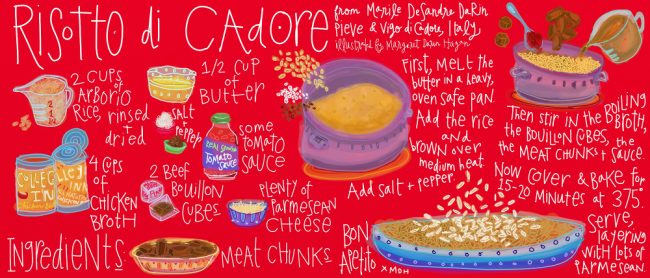 RISOTTO di CADORE
from Marile DeSandre DaRin
Pieve & Vigo di Cadore, Italy
2 CUPS
of
ARBORIO
RICE rinsed
+
dried
1/2 CUP
of
BUTTER
SALT
+
PEPPER
REAL
TOMATO
SAUCE
some
TOMATO
SAUCE
4 CUPS
of
CHICKEN
BROTH
2 BEEF
BOUILLON
CUBES
PLENTY of
PARMESEAN
CHEESE
INGREDIENTS
MEAT CHUNKS
First, MELT the
butter in a heavy,
oven safe pan.
Add the rice
and
brown over
medium heat.
Add salt + pepper.
Then stir in the BOILING
BROTH,
the BOUILLON CUBES, the
the MEAT CHUNKS + SAUCE.
Now COVER & BAKE for
15-20 MINUTES at 375.
SERVE,
LAYERING
WITH LOTS of
PARMESEAN.
BON
APETITO
x MDH